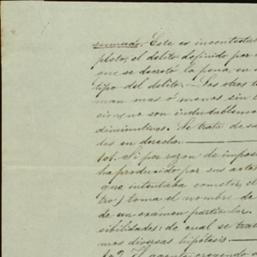 sumado. Este es incontestab
pleto, el delito definido por
que se decretó la pena, en
tipo del delito. Las otras t
man mas ó menos sin e
cion, y no son indudablemen
diminutivos. Se trata de sa
des en derecho.
101. Si por razon de impos
ha producido por sus actos
que intentaba cometer, el
tro) toma el nombre de
de un exámen particular.
sibilidades: de cual se tra
mos diversas hipótesis
El agente creyendo